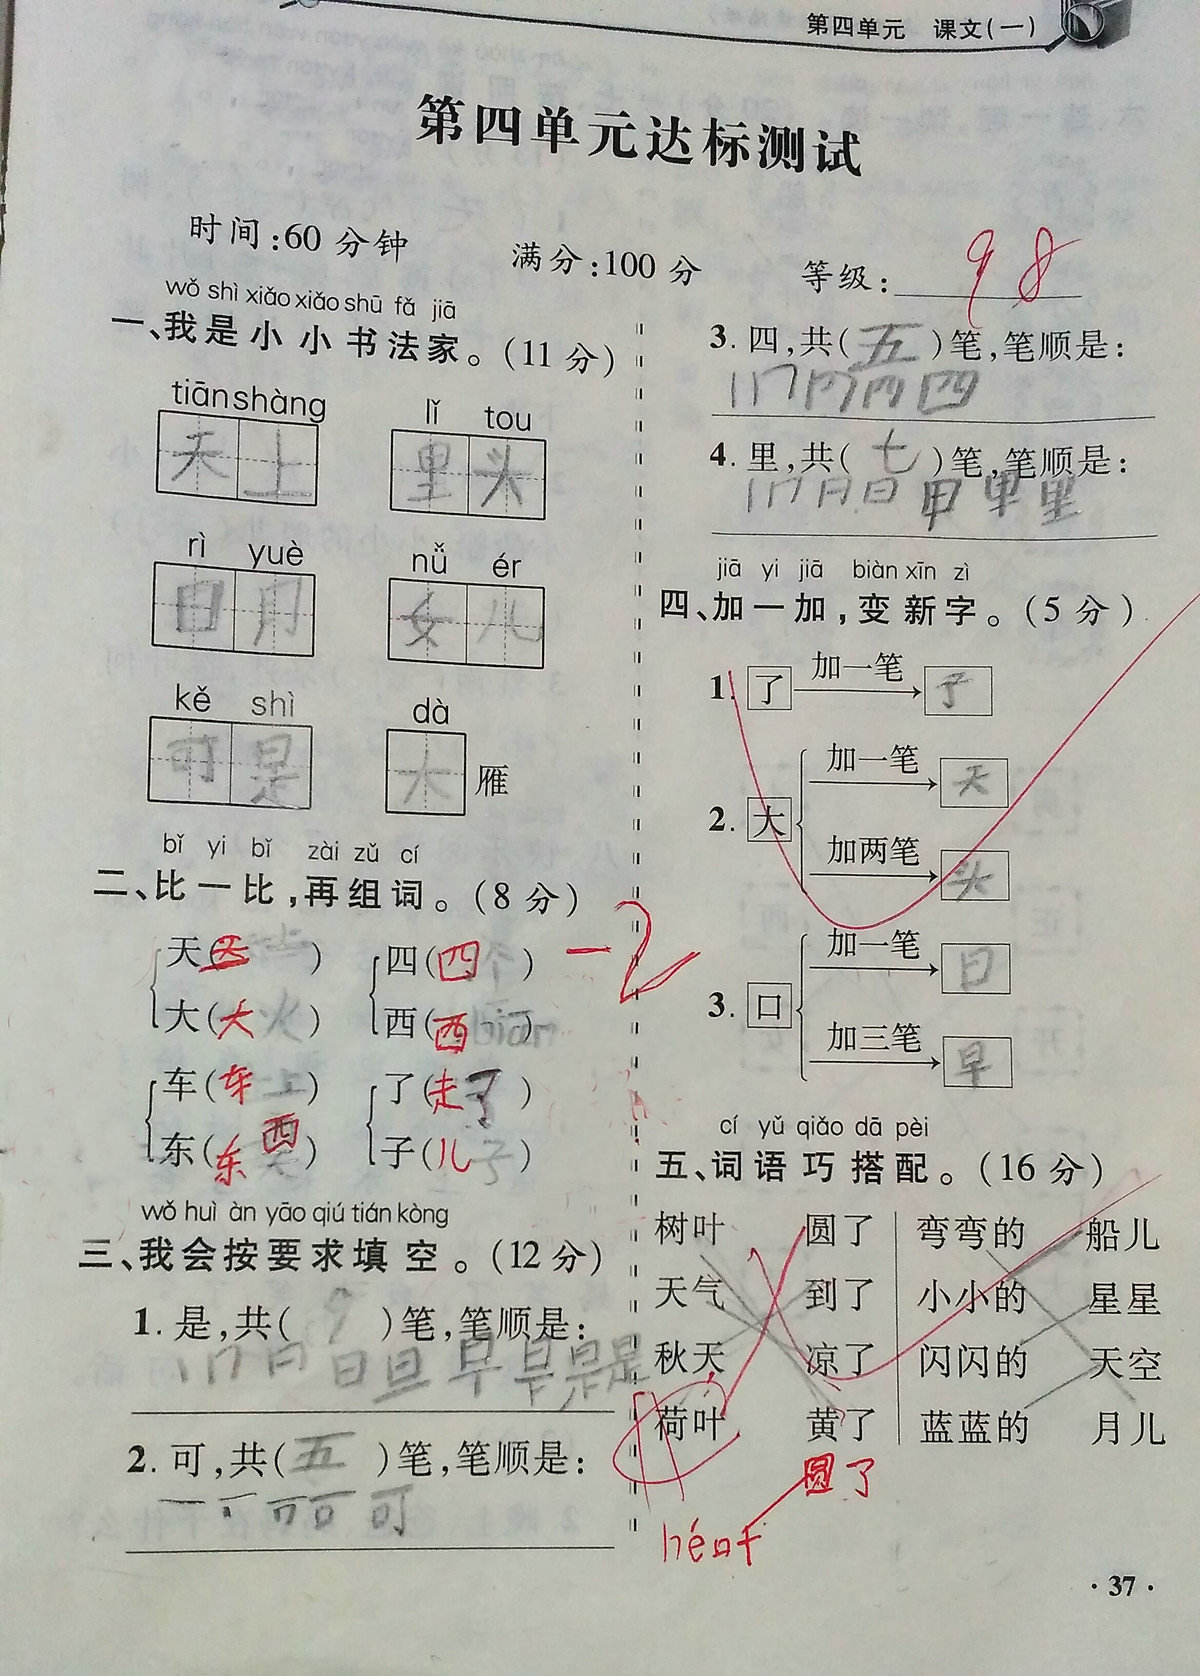 第四单元 课文(一)
第四单元达标测试
时间:60 分钟 满分:100 分 等级: 98
wǒ shì xiǎo xiǎo shū fǎ jiā
一、我是小小书法家。(11 分)
tiān shàng lǐ tou
天上 里头
rì yuè nǚ ér
日月 女儿
kě shì dà
可是 大雁
bǐ yi bǐ zài zǔ cí
二、比一比,再组词。(8 分)
天( 上 ) 四(四个) -2
大(大火) 西(西biān)
车(车上) 了(走了)
东(东西) 子(儿子)
wǒ huì àn yāo qiú tián kòng
三、我会按要求填空。(12 分)
1. 是,共( 9 )笔,笔顺是:
丨 冂 日 日 旦 早 早 是 是
2. 可,共( 五 )笔,笔顺是:
一 可
3. 四,共( 五 )笔,笔顺是:
丨 冂 四
4. 里,共( 七 )笔,笔顺是:
丨 冂 日 日 甲 里 里
jiā yi jiā biàn xīn zì
四、加一加,变新字。(5 分)
1. 了 加一笔 子
2. 大 加一笔 天
加两笔 头
3. 口 加一笔 日
加三笔 早
cí yǔ qiǎo dā pèi
五、词语巧搭配。(16 分)
树叶 圆了 弯弯的 船儿
天气 到了 小小的 星星
秋天 凉了 闪闪的 天空
荷叶 黄了 蓝蓝的 月儿
圆了
hé叶
· 37 ·